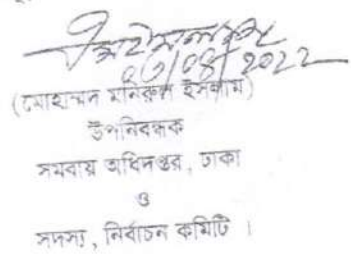 ০৩/০৪/2022
(মোহাম্মদ মনিরুল ইসলাম)
উপনিবন্ধক
সমবায় অধিদপ্তর, ঢাকা
ও
সদস্য, নির্বাচন কমিটি ।